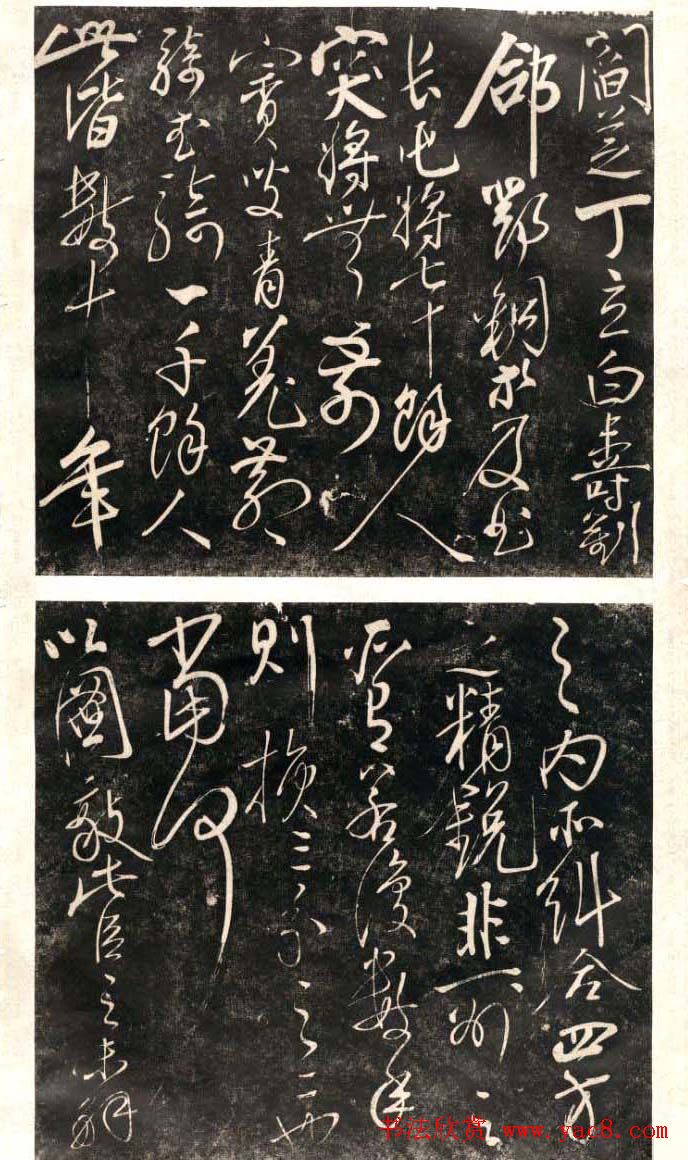 閻芝丁立白壽劉
郃鄧銅等及曲
長屯將七十餘人
突將無前
賨叟青羌散
騎武騎一千餘人
此皆數十年
之內所糾合四方
之精銳非一州之
所有若復數年
則損三分之二也
當何
以圖敵此臣之未解
书法欣赏 www.yac8.com